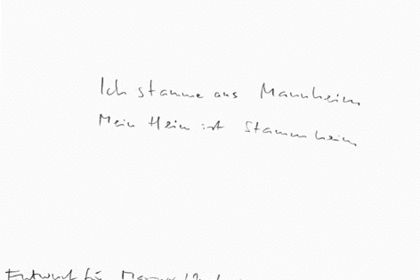 Ich stamme aus Mannheim
Mein Heim ist Stammheim
Entwurf für